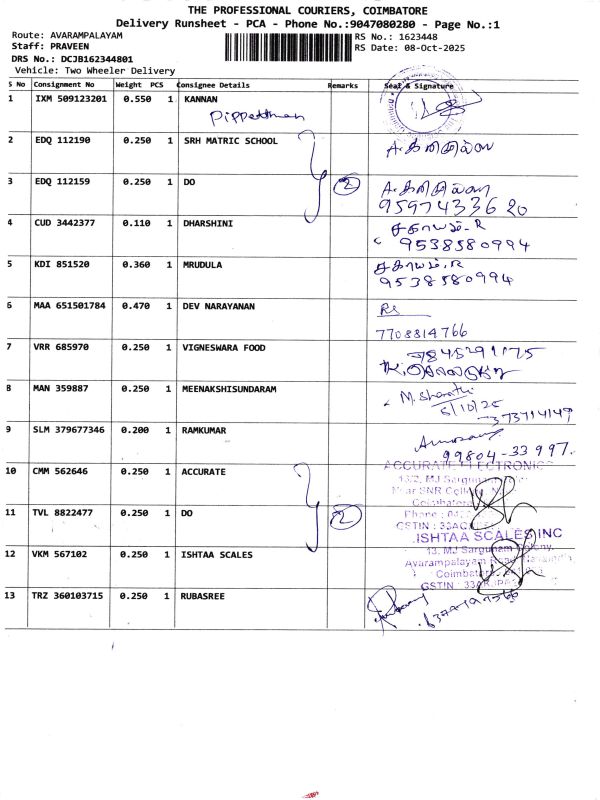 THE PROFESSIONAL COURIERS, COIMBATORE
Delivery Runsheet - PCA - Phone No.:9047080280 - Page No.:1
Route: AVARAMPALAYAM RS No.: 1623448
Staff: PRAVEEN RS Date: 08-Oct-2025
DRS No.: DCJB162344801
Vehicle: Two Wheeler Delivery
S No Consignment No Weight PCS Consignee Details Remarks Seal & Signature
1 IXM 509123201 0.550 1 KANNAN
2 EDQ 112190 0.250 1 SRH MATRIC SCHOOL
3 EDQ 112159 0.250 1 DO 2
9597433620
4 CUD 3442377 0.110 1 DHARSHINI சகாயம்.R
9538580994
5 KDI 851520 0.360 1 MRUDULA சகாயம்.R
9538580994
6 MAA 651501784 0.470 1 DEV NARAYANAN RS
7708814766
7 VRR 685970 0.250 1 VIGNESWARA FOOD
8 MAN 359887 0.250 1 MEENAKSHISUNDARAM M. Sharathi
9 SLM 379677346 0.200 1 RAMKUMAR
99804-33997.
10 CMM 562646 0.250 1 ACCURATE ACCURATE ELECTRONICS
13/2, MJ
Near SNR
Coimbatore
Phone :
11 TVL 8822477 0.250 1 DO 2 GSTIN :
ISHTAA SCALES INC
12 VKM 567102 0.250 1 ISHTAA SCALES 13, MJ Sargunam Colony,
Avarampalayam Road
GSTIN :
13 TRZ 360103715 0.250 1 RUBASREE